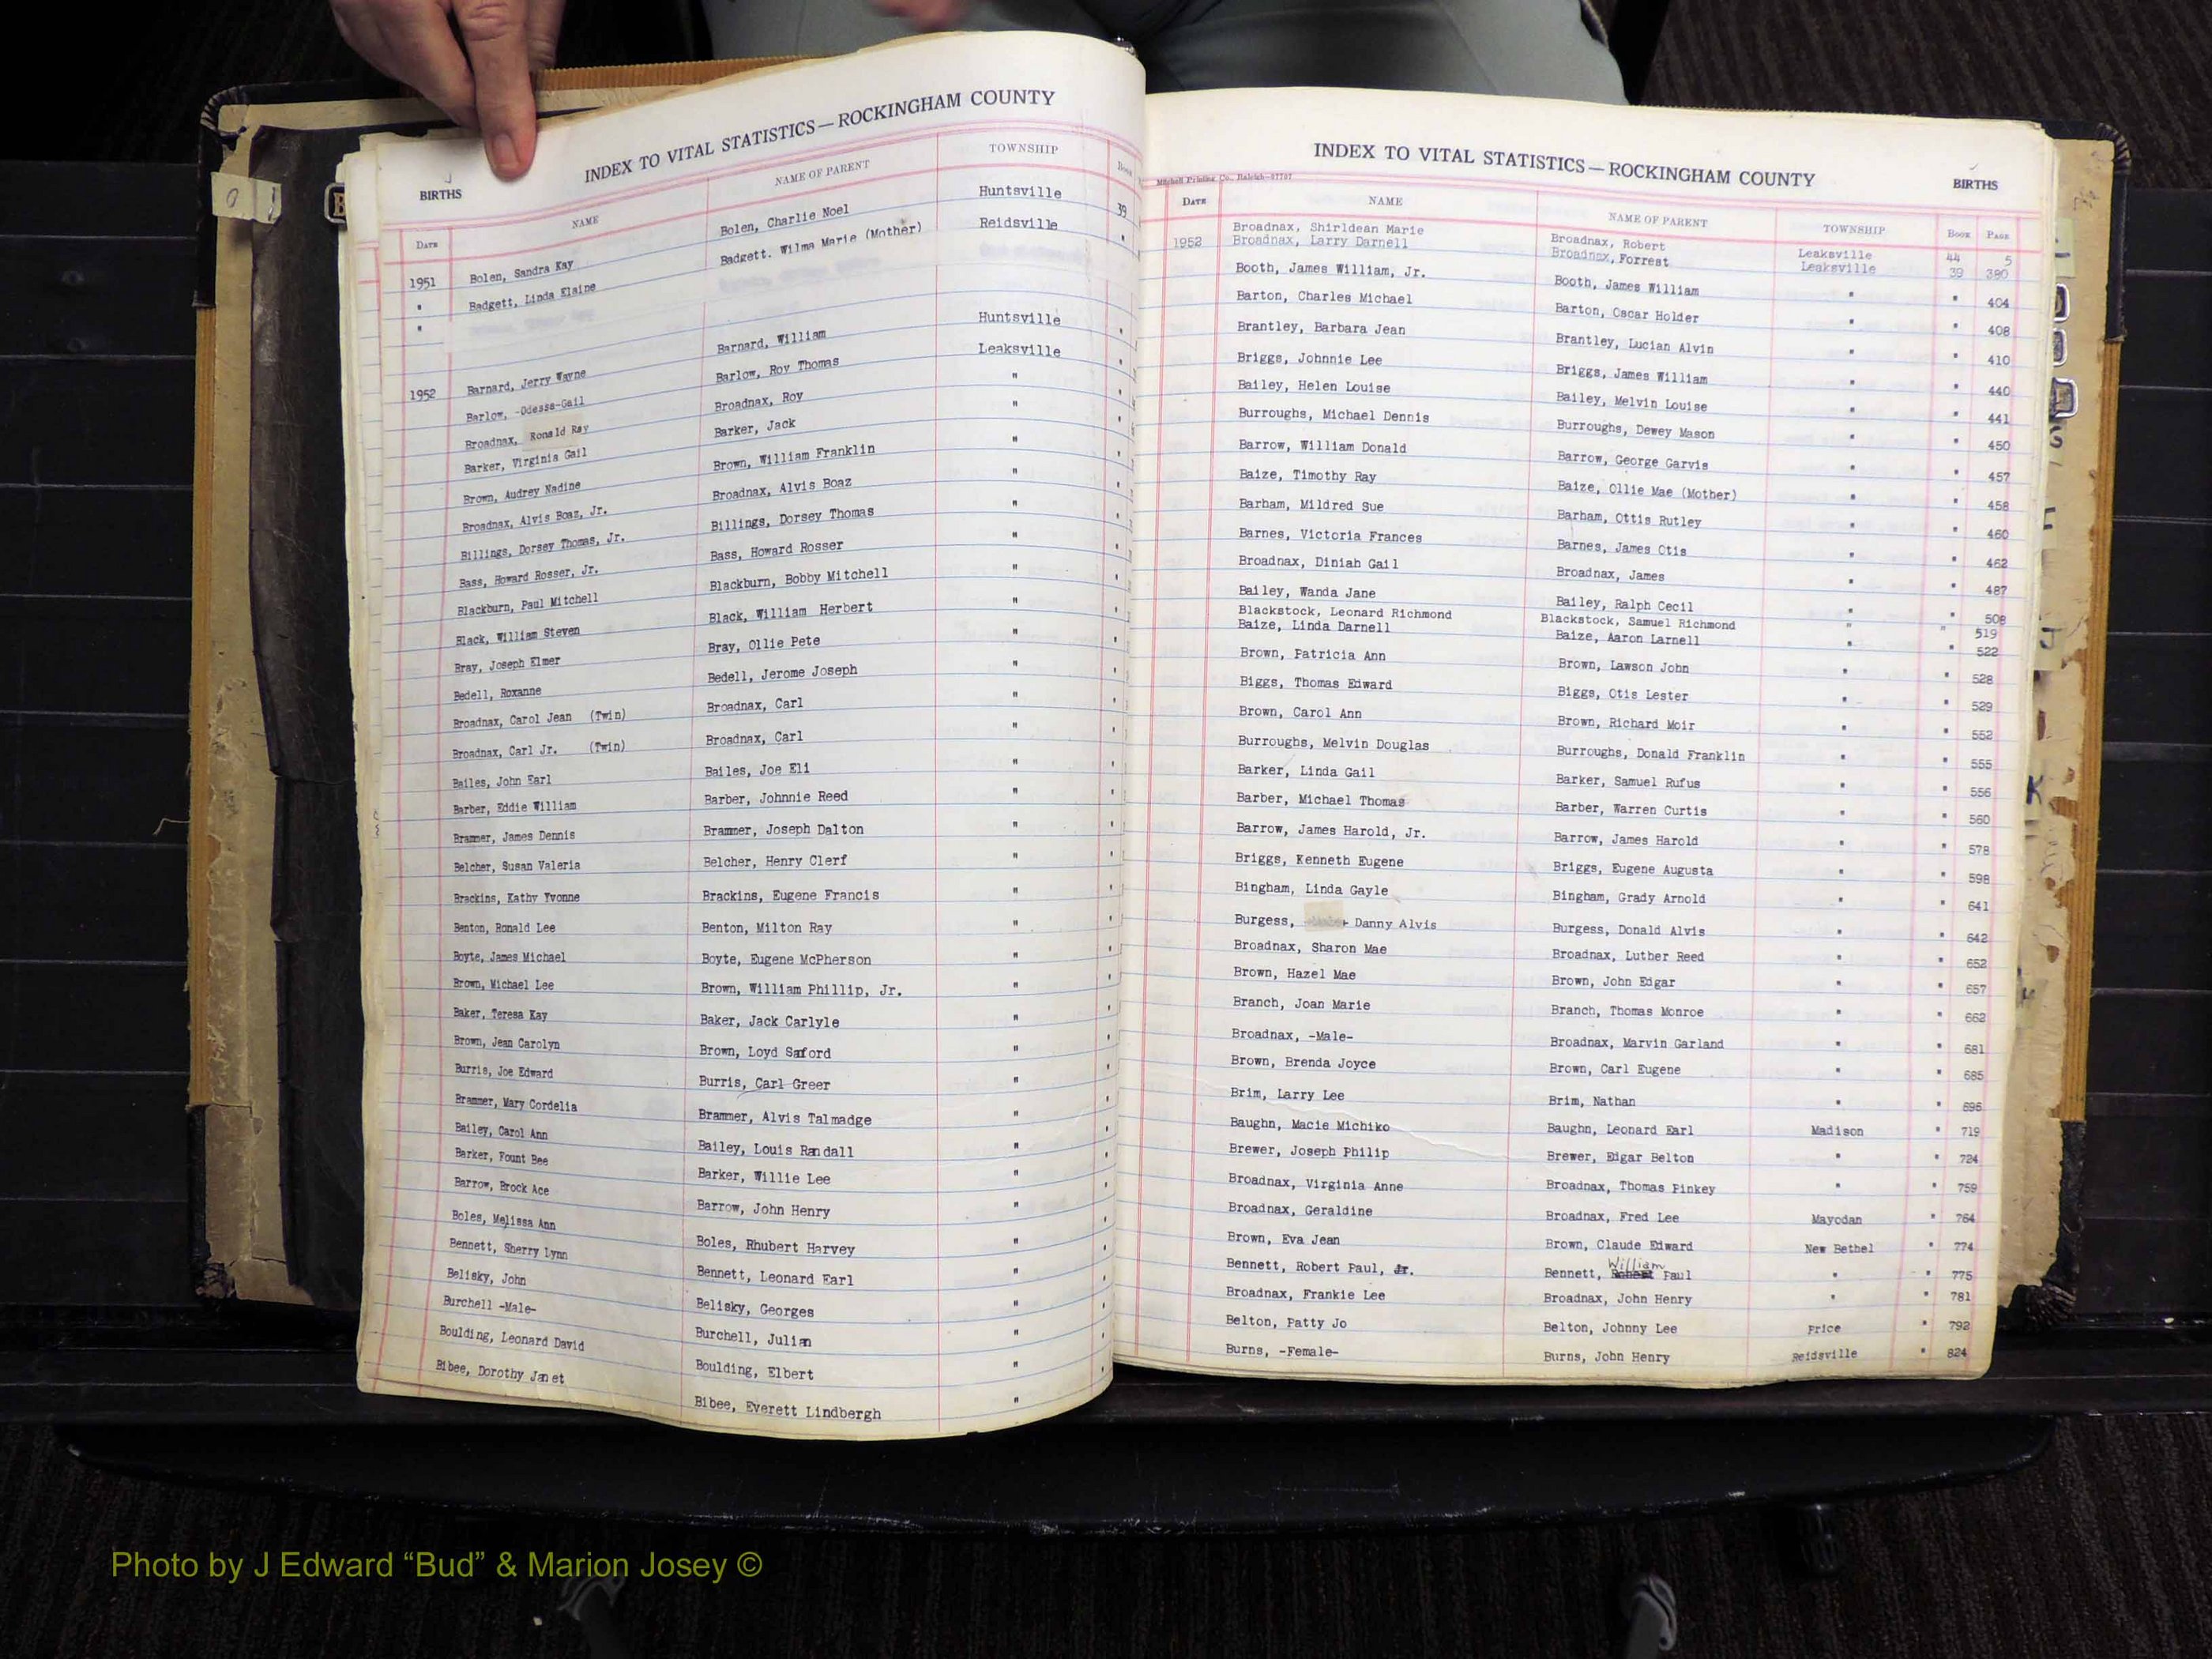 INDEX TO VITAL STATISTICS — ROCKINGHAM COUNTY
BIRTHS
DATE NAME NAME OF PARENT TOWNSHIP BOOK
1951 Bolen, Sandra Kay Bolen, Charlie Noel Huntsville 39
" Badgett, Linda Elaine Badgett. Wilma Marie (Mother) Reidsville "
"
1952 Barnard, Jerry Wayne Barnard, William Huntsville "
Barlow, -Odessa-Gail Barlow, Roy Thomas Leaksville "
Broadnax, Ronald Ray Broadnax, Roy " "
Barker, Virginia Gail Barker, Jack " "
Brown, Audrey Nadine Brown, William Franklin " "
Broadnax, Alvis Boaz, Jr. Broadnax, Alvis Boaz " "
Billings, Dorsey Thomas, Jr. Billings, Dorsey Thomas " "
Bass, Howard Rosser, Jr. Bass, Howard Rosser " "
Blackburn, Paul Mitchell Blackburn, Bobby Mitchell " "
Black, William Steven Black, William Herbert " "
Bray, Joseph Elmer Bray, Ollie Pete " "
Bedell, Roxanne Bedell, Jerome Joseph " "
Broadnax, Carol Jean (Twin) Broadnax, Carl " "
Broadnax, Carl Jr. (Twin) Broadnax, Carl " "
Bailes, John Earl Bailes, Joe Eli " "
Barber, Eddie William Barber, Johnnie Reed " "
Brammer, James Dennis Brammer, Joseph Dalton " "
Belcher, Susan Valeria Belcher, Henry Clerf " "
Brackins, Kathy Yvonne Brackins, Eugene Francis " "
Benton, Ronald Lee Benton, Milton Ray " "
Boyte, James Michael Boyte, Eugene McPherson " "
Brown, Michael Lee Brown, William Phillip, Jr. " "
Baker, Teresa Kay Baker, Jack Carlyle " "
Brown, Jean Carolyn Brown, Loyd Saford " "
Burris, Joe Edward Burris, Carl Greer " "
Brammer, Mary Cordelia Brammer, Alvis Talmadge " "
Bailey, Carol Ann Bailey, Louis Randall " "
Barker, Fount Bee Barker, Willie Lee " "
Barrow, Brock Ace Barrow, John Henry " "
Boles, Melissa Ann Boles, Rhubert Harvey " "
Bennett, Sherry Lynn Bennett, Leonard Earl " "
Belisky, John Belisky, Georges " "
Burchell -Male- Burchell, Julian " "
Boulding, Leonard David Boulding, Elbert " "
Bibee, Dorothy Janet Bibee, Everett Lindbergh "
INDEX TO VITAL STATISTICS — ROCKINGHAM COUNTY
Mitchell Printing Co., Raleigh—67707
BIRTHS
DATE NAME NAME OF PARENT TOWNSHIP BOOK PAGE
Broadnax, Shirldean Marie Broadnax, Robert Leaksville 44 5
1952 Broadnax, Larry Darnell Broadnax, Forrest Leaksville 39 380
Booth, James William, Jr. Booth, James William " " 404
Barton, Charles Michael Barton, Oscar Holder " " 408
Brantley, Barbara Jean Brantley, Lucian Alvin " " 410
Briggs, Johnnie Lee Briggs, James William " " 440
Bailey, Helen Louise Bailey, Melvin Louise " " 441
Burroughs, Michael Dennis Burroughs, Dewey Mason " " 450
Barrow, William Donald Barrow, George Garvis " " 457
Baize, Timothy Ray Baize, Ollie Mae (Mother) " " 458
Barham, Mildred Sue Barham, Ottis Rutley " " 460
Barnes, Victoria Frances Barnes, James Otis " " 462
Broadnax, Diniah Gail Broadnax, James " " 487
Bailey, Wanda Jane Bailey, Ralph Cecil " " 508
Blackstock, Leonard Richmond Blackstock, Samuel Richmond " " 519
Baize, Linda Darnell Baize, Aaron Larnell " " 522
Brown, Patricia Ann Brown, Lawson John " " 528
Biggs, Thomas Edward Biggs, Otis Lester " " 529
Brown, Carol Ann Brown, Richard Moir " " 552
Burroughs, Melvin Douglas Burroughs, Donald Franklin " " 555
Barker, Linda Gail Barker, Samuel Rufus " " 556
Barber, Michael Thomas Barber, Warren Curtis " " 560
Barrow, James Harold, Jr. Barrow, James Harold " " 578
Briggs, Kenneth Eugene Briggs, Eugene Augusta " " 598
Bingham, Linda Gayle Bingham, Grady Arnold " " 641
Burgess, Danny Alvis Burgess, Donald Alvis " " 642
Broadnax, Sharon Mae Broadnax, Luther Reed " " 652
Brown, Hazel Mae Brown, John Edgar " " 657
Branch, Joan Marie Branch, Thomas Monroe " " 662
Broadnax, -Male- Broadnax, Marvin Garland " " 681
Brown, Brenda Joyce Brown, Carl Eugene " " 685
Brim, Larry Lee Brim, Nathan " " 695
Baughn, Macie Michiko Baughn, Leonard Earl Madison " 719
Brewer, Joseph Philip Brewer, Edgar Belton " " 724
Broadnax, Virginia Anne Broadnax, Thomas Pinkey " " 759
Broadnax, Geraldine Broadnax, Fred Lee Mayodan " 764
Brown, Eva Jean Brown, Claude Edward New Bethel " 774
Bennett, Robert Paul, Jr. Bennett, William Paul " " 775
Broadnax, Frankie Lee Broadnax, John Henry " " 781
Belton, Patty Jo Belton, Johnny Lee Price " 792
Burns, -Female- Burns, John Henry Reidsville " 824
Photo by J Edward “Bud” & Marion Josey ©